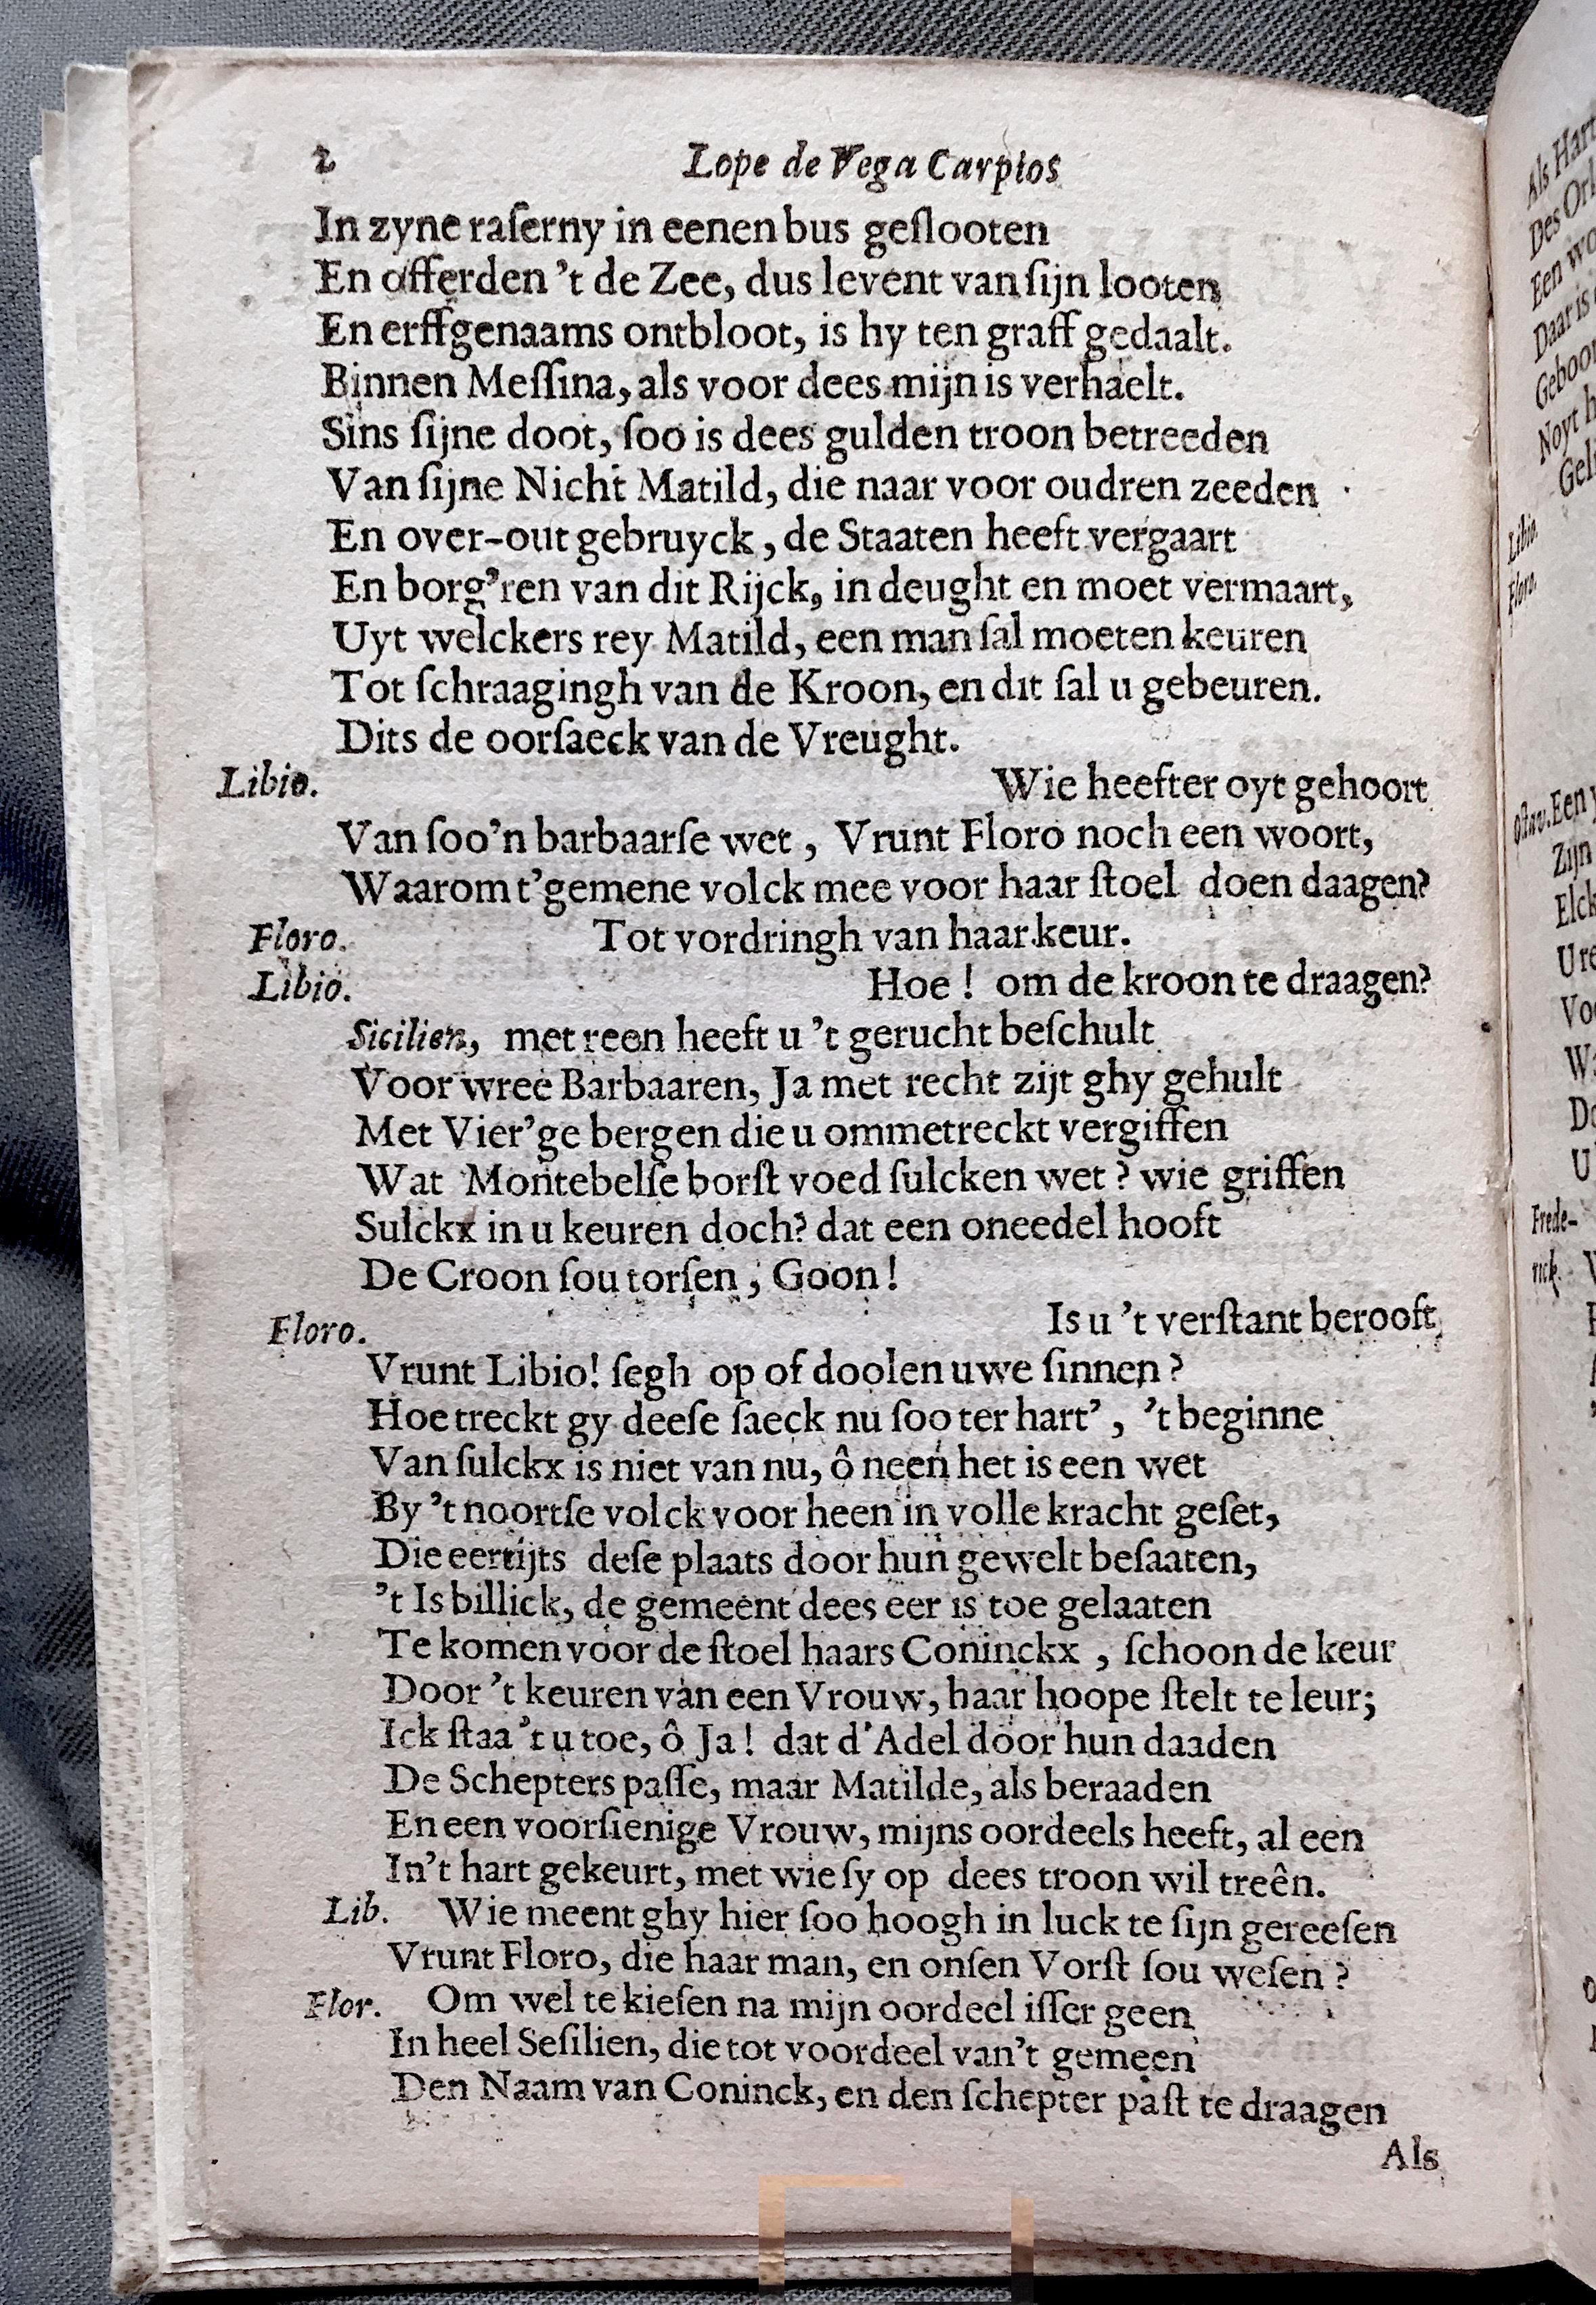 2 Lope de Vega Carpios
In zyne raſerny in eenen bus geſlooten
En offerden 't de Zee, dus levent van ſijn looten
En erffgenaams ontbloot, is hy ten graff gedaalt.
Binnen Meſſina, als voor dees mijn is verhaelt.
Sins ſijne doot, ſoo is dees gulden troon betreeden
Van ſijne Nicht Matild, die naar voor oudren zeeden
En over-out gebruyck, de Staaten heeft vergaart
En borg'ren van dit Rijck, in deught en moet vermaart,
Uyt welckers rey Matild, een man ſal moeten keuren
Tot ſchraagingh van de Kroon, en dit ſal u gebeuren.
Dits de oorſaeck van de Vreught.
Libio. Wie heefter oyt gehoort
Van ſoo'n barbaarſe wet, Vrunt Floro noch een woort,
Waarom t'gemene volck mee voor haar ſtoel doen daagen?
Floro. Tot vordringh van haar keur.
Libio. Hoe! om de kroon te draagen?
Sicilien, met reen heeft u 't gerucht beſchult
Voor wree Barbaaren, Ja met recht zijt ghy gehult
Met Vier'ge bergen die u ommetreckt vergiffen
Wat Montebelſe borſt voed ſulcken wet? wie griffen
Sulckx in u keuren doch? dat een oneedel hooft
De Croon ſou torſen, Goon!
Floro. Is u 't verſtant berooft,
Vrunt Libio! ſegh op of doolen uwe ſinnen?
Hoe treckt gy deeſe ſaeck nu ſoo ter hart', 't beginne
Van ſulckx is niet van nu, ô neen het is een wet
By 't noortſe volck voor heen in volle kracht geſet,
Die eertijts deſe plaats door hun gewelt beſaaten,
't Is billick, de gemeent dees eer is toe gelaaten
Te komen voor de ſtoel haars Coninckx, ſchoon de keur
Door 't keuren van een Vrouw, haar hoope ſtelt te leur;
Ick ſtaa 't u toe, ô Ja! dat d'Adel door hun daaden
De Schepters paſſe, maar Matilde, als beraaden
En een voorſienige Vrouw, mijns oordeels heeft, al een
In't hart gekeurt, met wie ſy op dees troon wil treên.
Lib. Wie meent ghy hier ſoo hoogh in luck te ſijn gereeſen
Vrunt Floro, die haar man, en onſen Vorſt ſou weſen?
Flor. Om wel te kieſen na mijn oordeel iſſer geen
In heel Seſilien, die tot voordeel van't gemeen
Den Naam van Coninck, en den ſchepter paſt te draagen
Als
Als Hart
Des Orl
Een wo
Daar is
Geboor
Noyt h
Libio.
Floro.
Octav. Een
Zijn
Elck
U re
Voo
Frede-
rick.